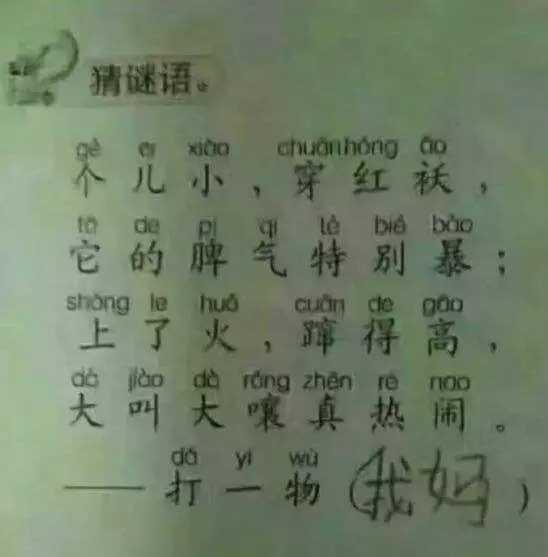 猜谜语。
gè er xiǎo chuān hóng ǎo
个儿小，穿红袄，
tā de pí qi tè bié bào
它的脾气特别暴；
shàng le huǒ cuān de gāo
上了火，蹿得高，
dà jiào dà rǎng zhēn rè nao
大叫大嚷真热闹。
dǎ yī wù
——打一物（我妈）